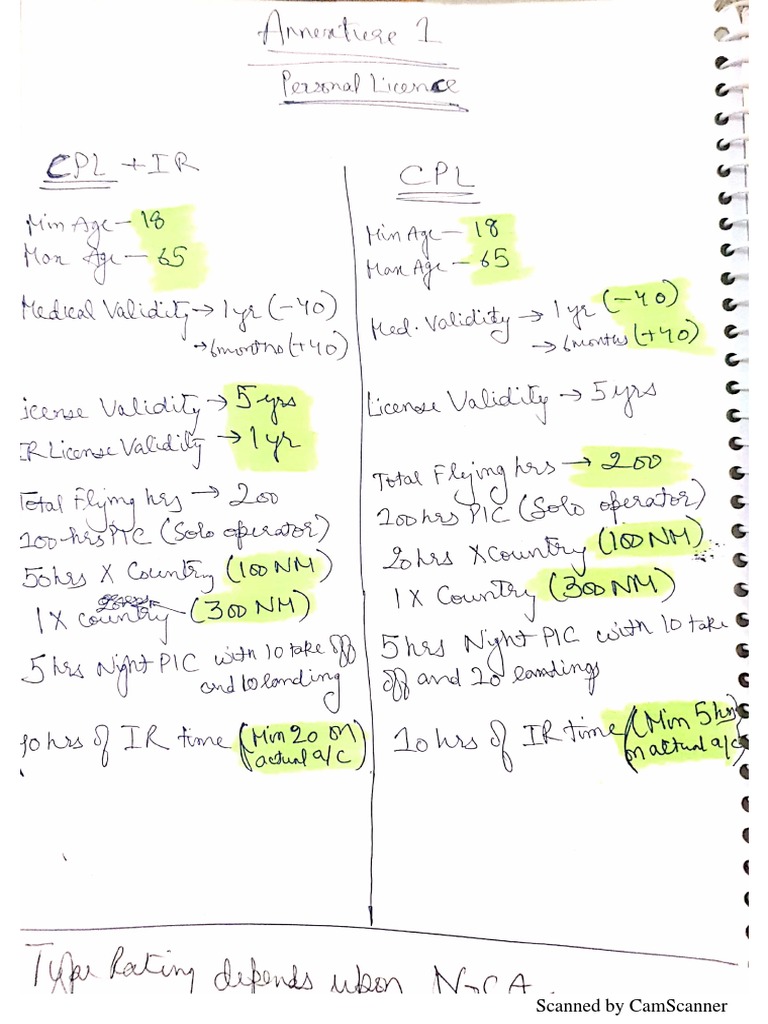 Annexture 1
Personal Licence
CPL + IR
Min Age - 18
Max Age - 65
Medical Validity → 1 yr (-40)
→ 6 months (+40)
icense Validity → 5 yrs
IR License Validity → 1 yr
Total Flying hrs → 200
100 hrs PIC (Solo operator)
50 hrs X Country (100 NM)
1 X country (300 NM)
5 hrs Night PIC with 10 take off
and 10 landing
0 hrs of IR time (Min 20 on
actual a/c)
CPL
Min Age - 18
Max Age - 65
Med. Validity → 1 yr (-40)
→ 6 months (+40)
License Validity → 5 yrs
Total Flying hrs → 200
100 hrs PIC (Solo operator)
20 hrs X country (100 NM)
1 X Country (300 NM)
5 hrs Night PIC with 10 take
off and 20 landings
10 hrs of IR time (Min 5 hrs
on actual a/c)
Type Rating depends upon
Scanned by CamScanner